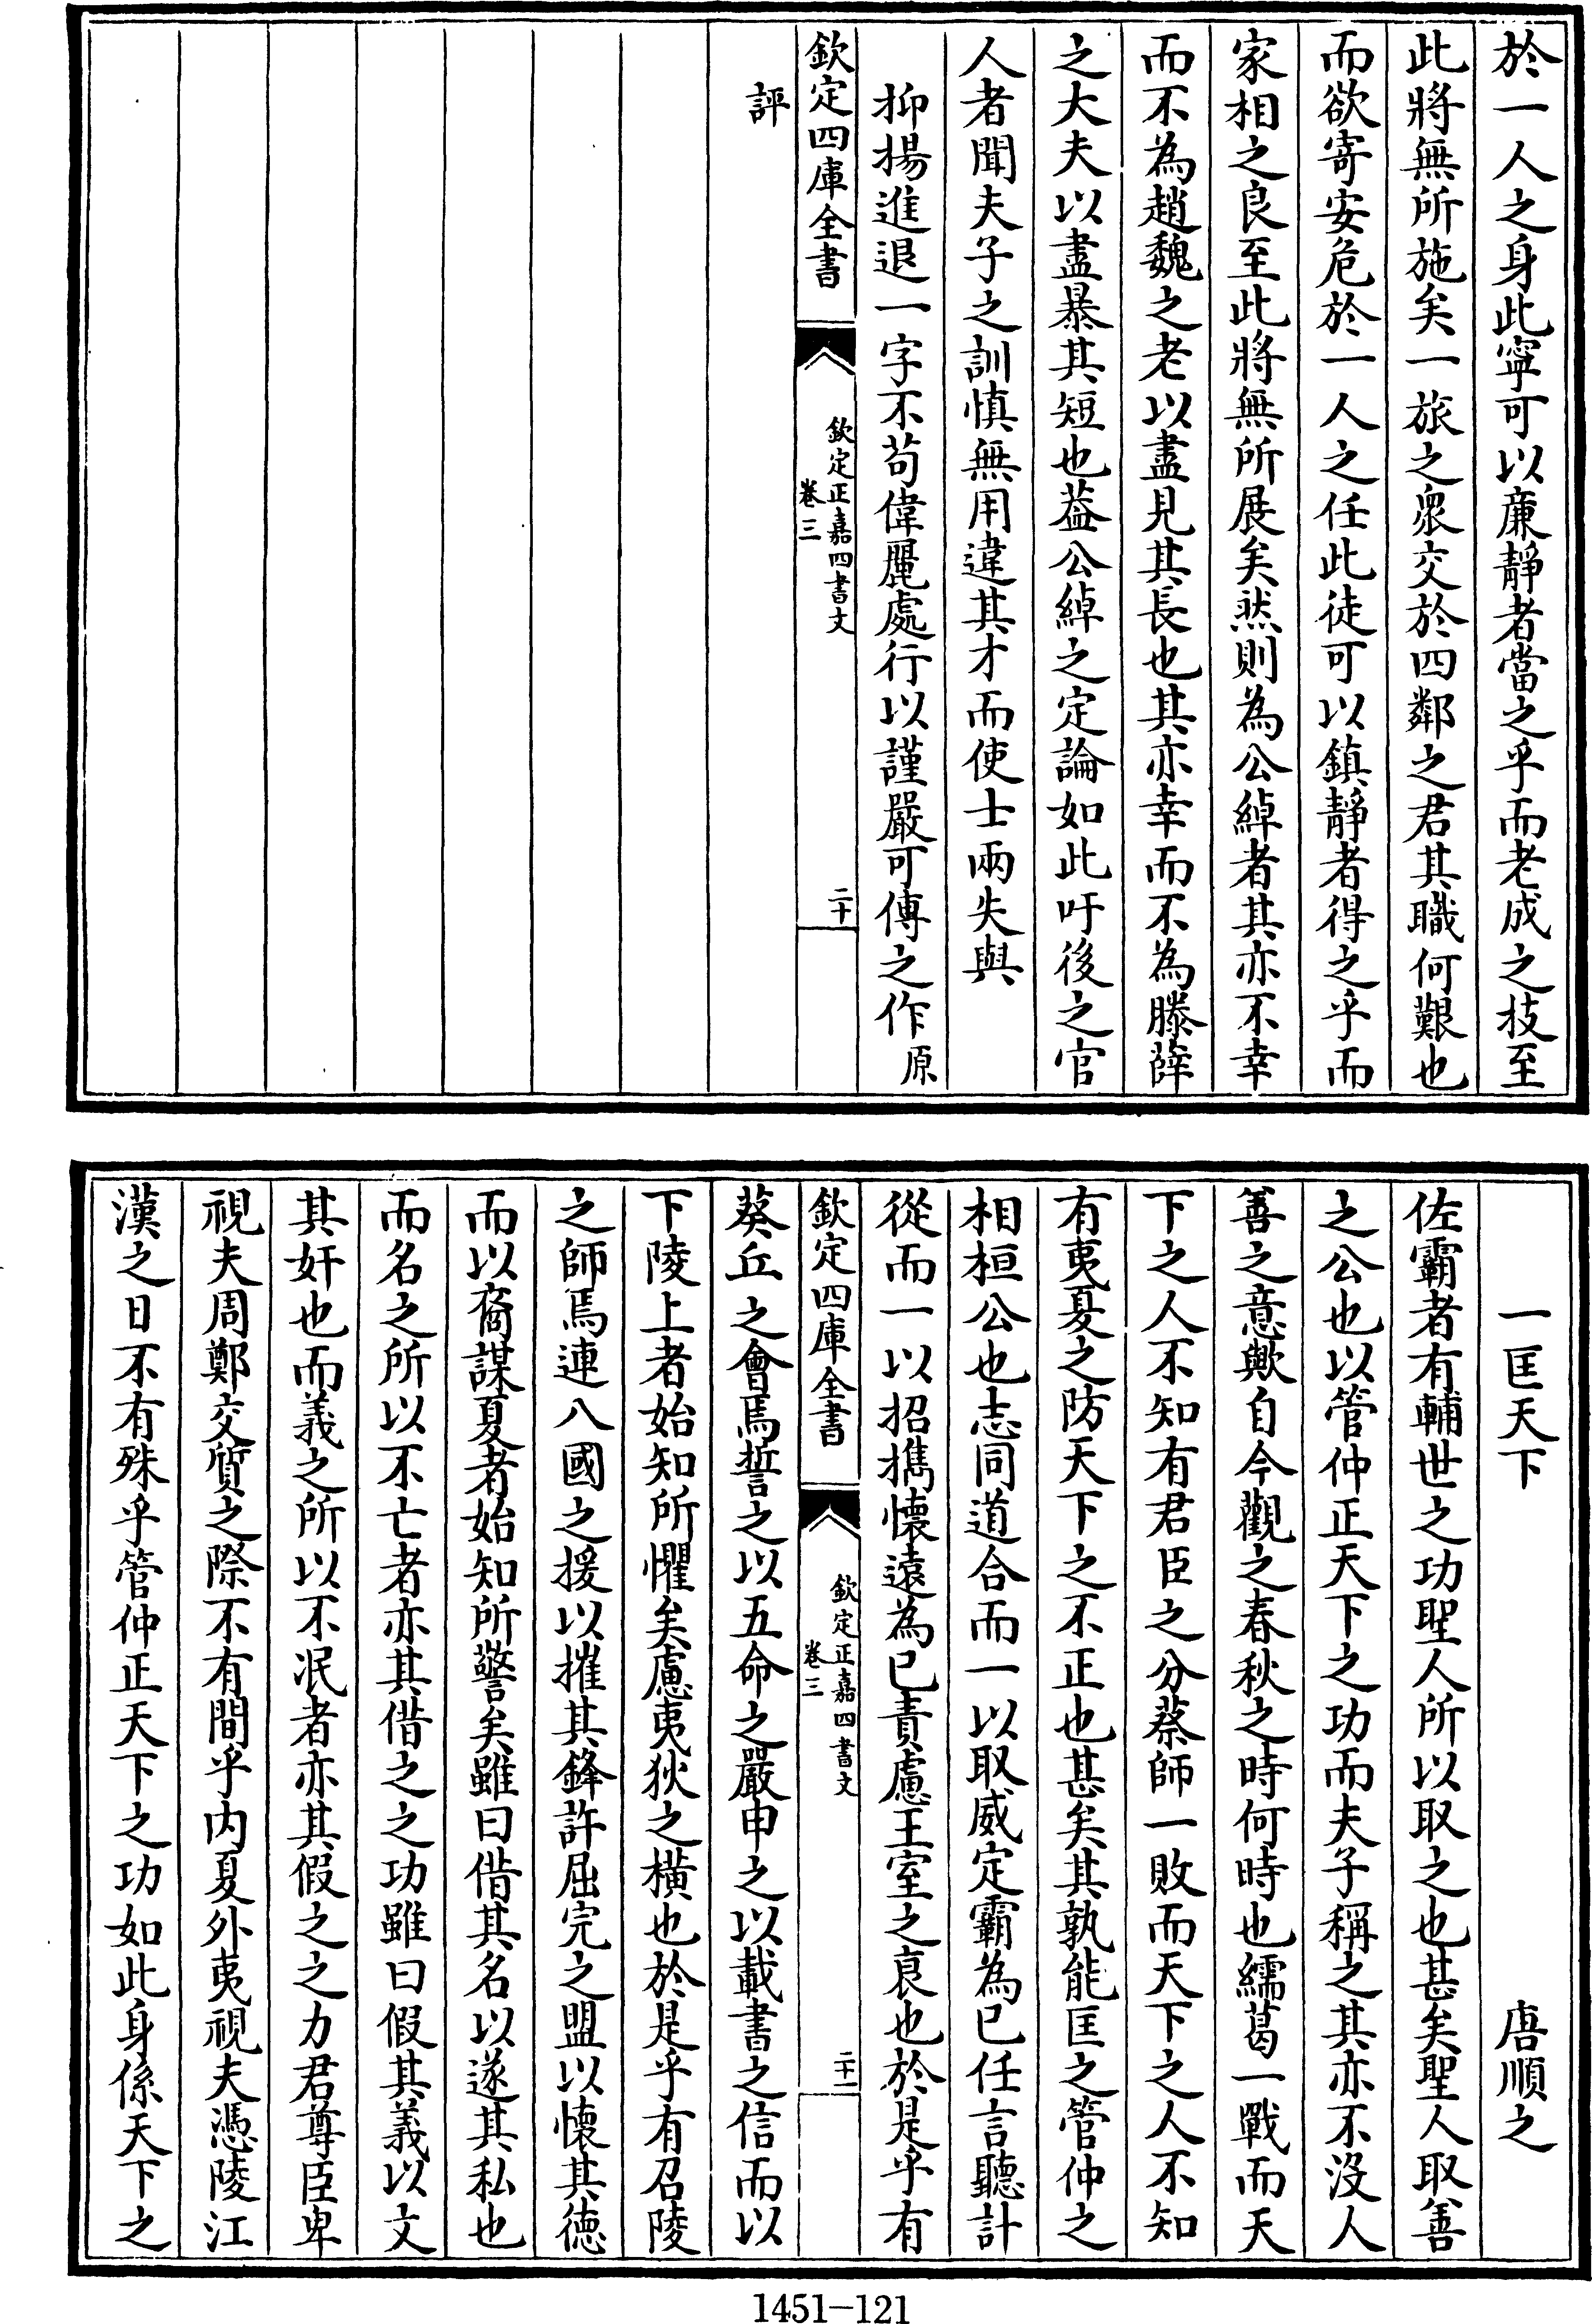 於一人之身此寧可以廉靜者當之乎而老成之技至
此將無所施矣一旅之衆交於四鄰之君其職何艱也
而欲寄安危於一人之任此徒可以鎮靜者得之乎而
家相之良至此將無所展矣然則為公綽者其亦不幸
而不為趙魏之老以盡見其長也其亦幸而不為滕薛
之大夫以盡暴其短也葢公綽之定論如此吁後之官
人者聞夫子之訓慎無用違其才而使士兩失與
抑揚進退一字不茍偉麗處行以謹嚴可傳之作原
欽定四庫全書
欽定正嘉四書文
卷三
二十
評
一匡天下 唐順之
佐霸者有輔世之功聖人所以取之也甚矣聖人取善
之公也以管仲正天下之功而夫子稱之其亦不沒人
善之意歟自今觀之春秋之時何時也繻葛一戰而天
下之人不知有君臣之分蔡師一敗而天下之人不知
有夷夏之防天下之不正也甚矣其孰能匡之管仲之
相桓公也志同道合而一以取威定霸為已任言聽計
從而一以招攜懷遠為已責慮王室之衰也於是乎有
欽定四庫全書
欽定正嘉四書文
卷三
二十一
葵丘之會焉誓之以五命之嚴申之以載書之信而以
下陵上者始知所懼矣慮夷狄之橫也於是乎有召陵
之師焉連八國之援以摧其鋒許屈完之盟以懷其德
而以裔謀夏者始知所警矣雖曰借其名以遂其私也
而名之所以不亡者亦其借之之功雖曰假其義以文
其奸也而義之所以不泯者亦其假之之力君尊臣卑
視夫周鄭交質之際不有間乎内夏外夷視夫憑陵江
漢之日不有殊乎管仲正天下之功如此身係天下之
1451-121